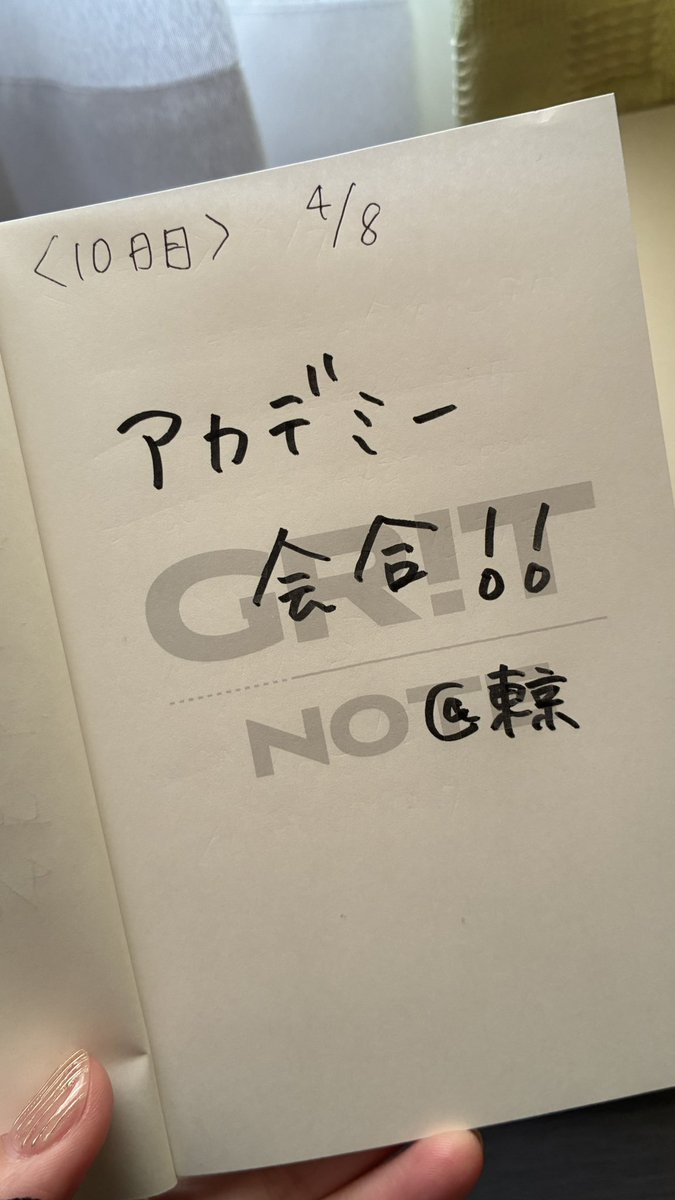 〈10日目〉 4/8
アカデミー
会合!!
GR!T
NOTE
@東京